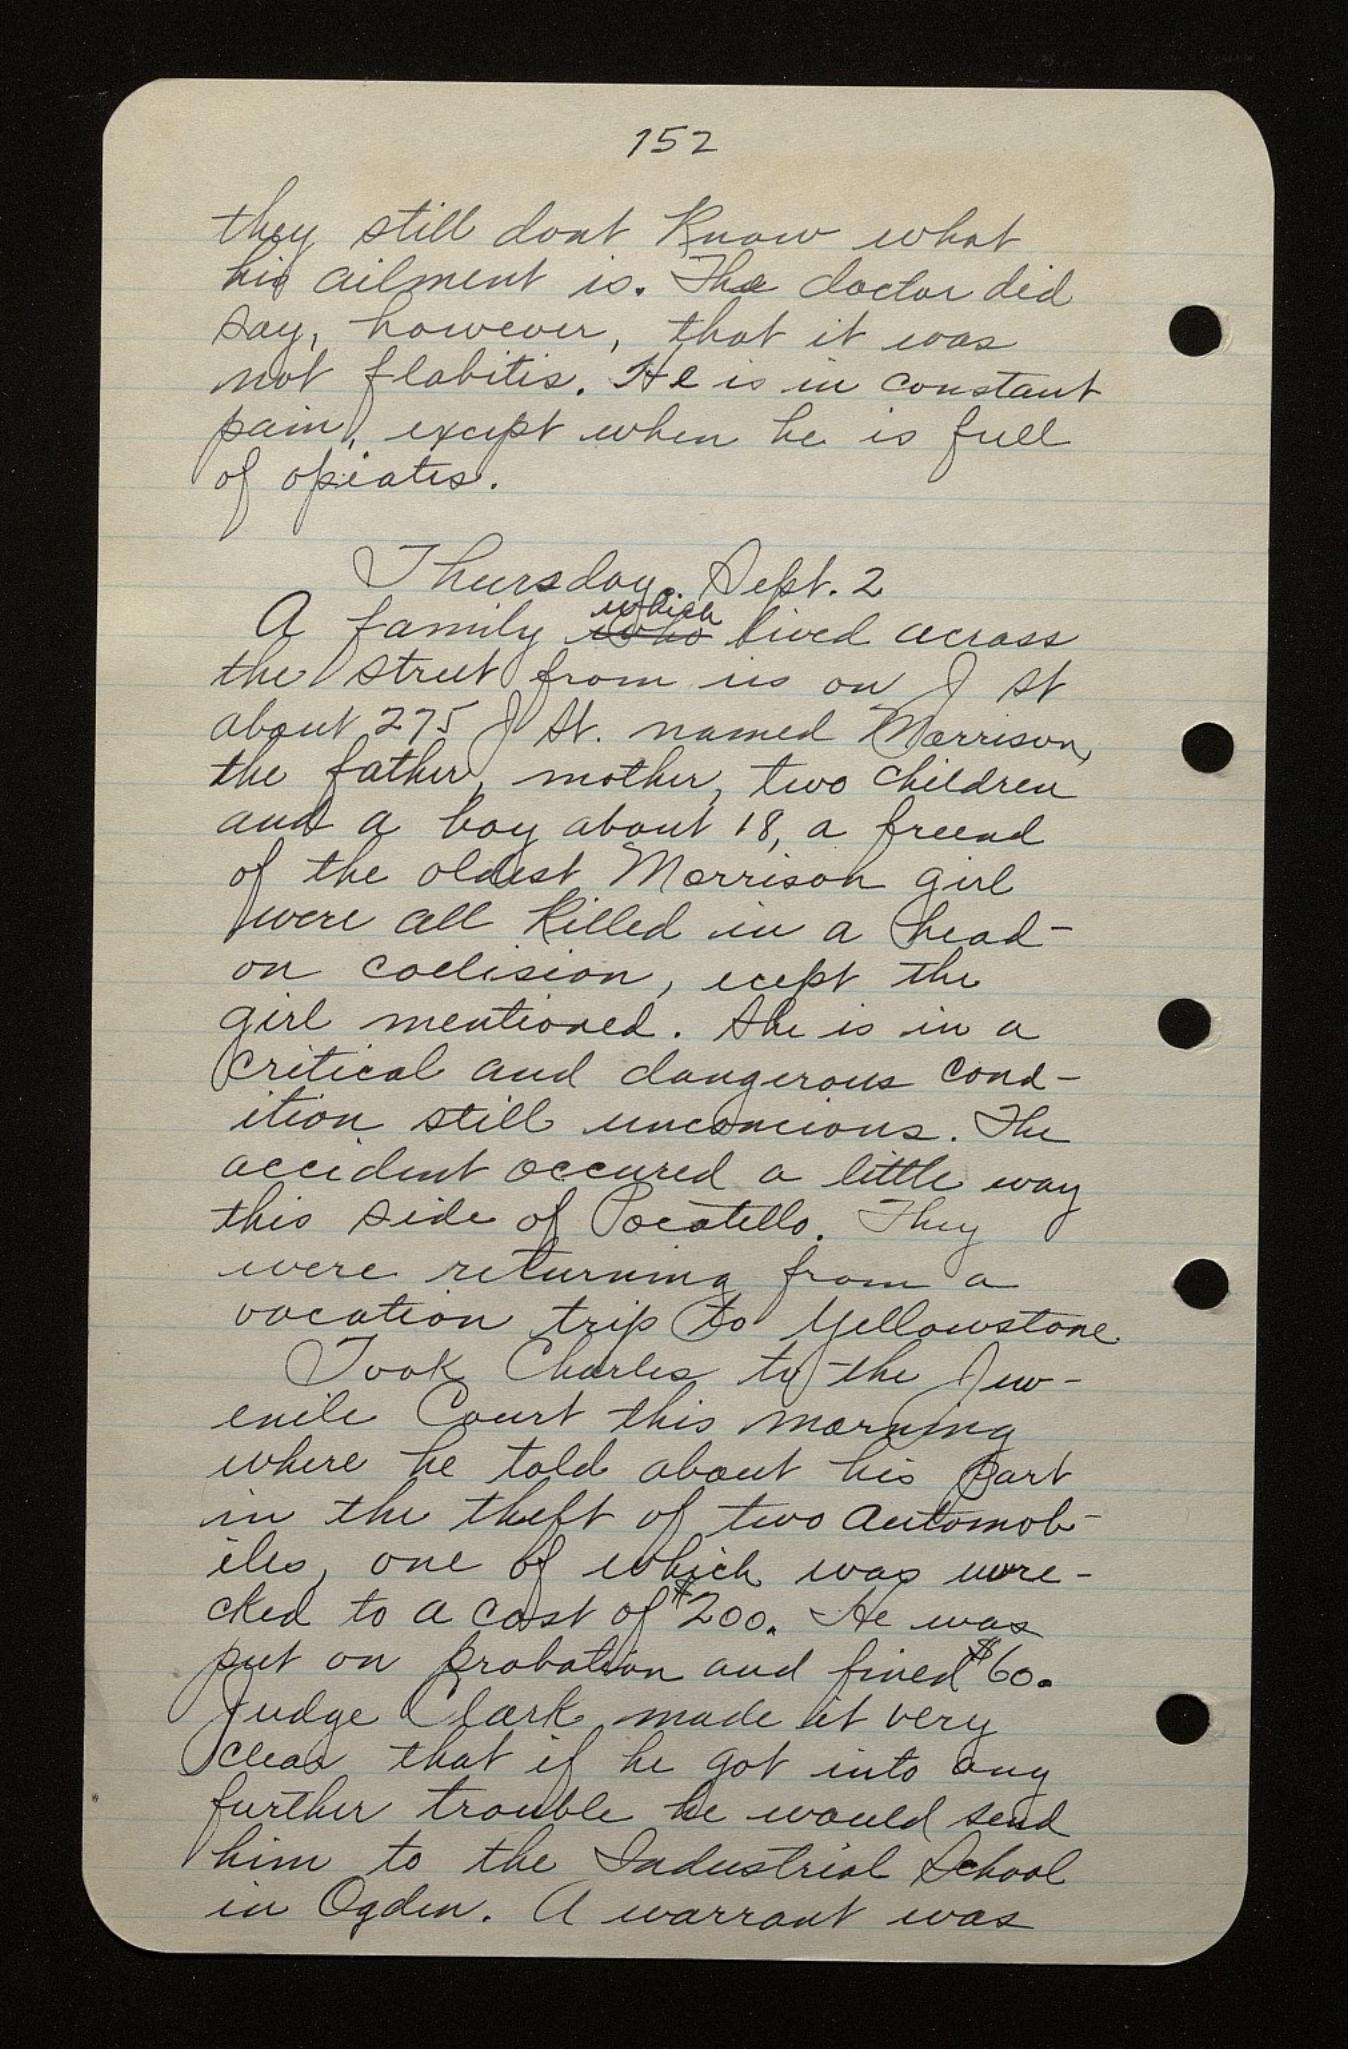 152
they still dont Know what
his ailment is. The doctor did
say, however, that it was
not flabitis. He is in constant
pain, except when he is full
of opiates.
Thursday. Sept. 2
A family ~~who~~ which lived across
the street from us on J St
about 275 J St. named Morrison,
the father, mother, two children
and a boy about 18, a freend
of the oldest Morrison girl
were all Killed in a head-
on collision, ecept the
girl mentioned. She is in a
critical and dangerous cond-
ition still unconcious. The
accident occured a little way
this side of Pocatello. They
were returning from a
vacation trip to Yellowstone.
Took Charles to the Juv-
enile Court this morning
where he told about his part
in the theft of two automob-
iles, one of which was wre-
cked to a cost of $200. He was
put on probation and fined $60.
Judge Clark made it very
clear that if he got into any
further trouble he would send
him to the Industrial School
in Ogden. A warrant was